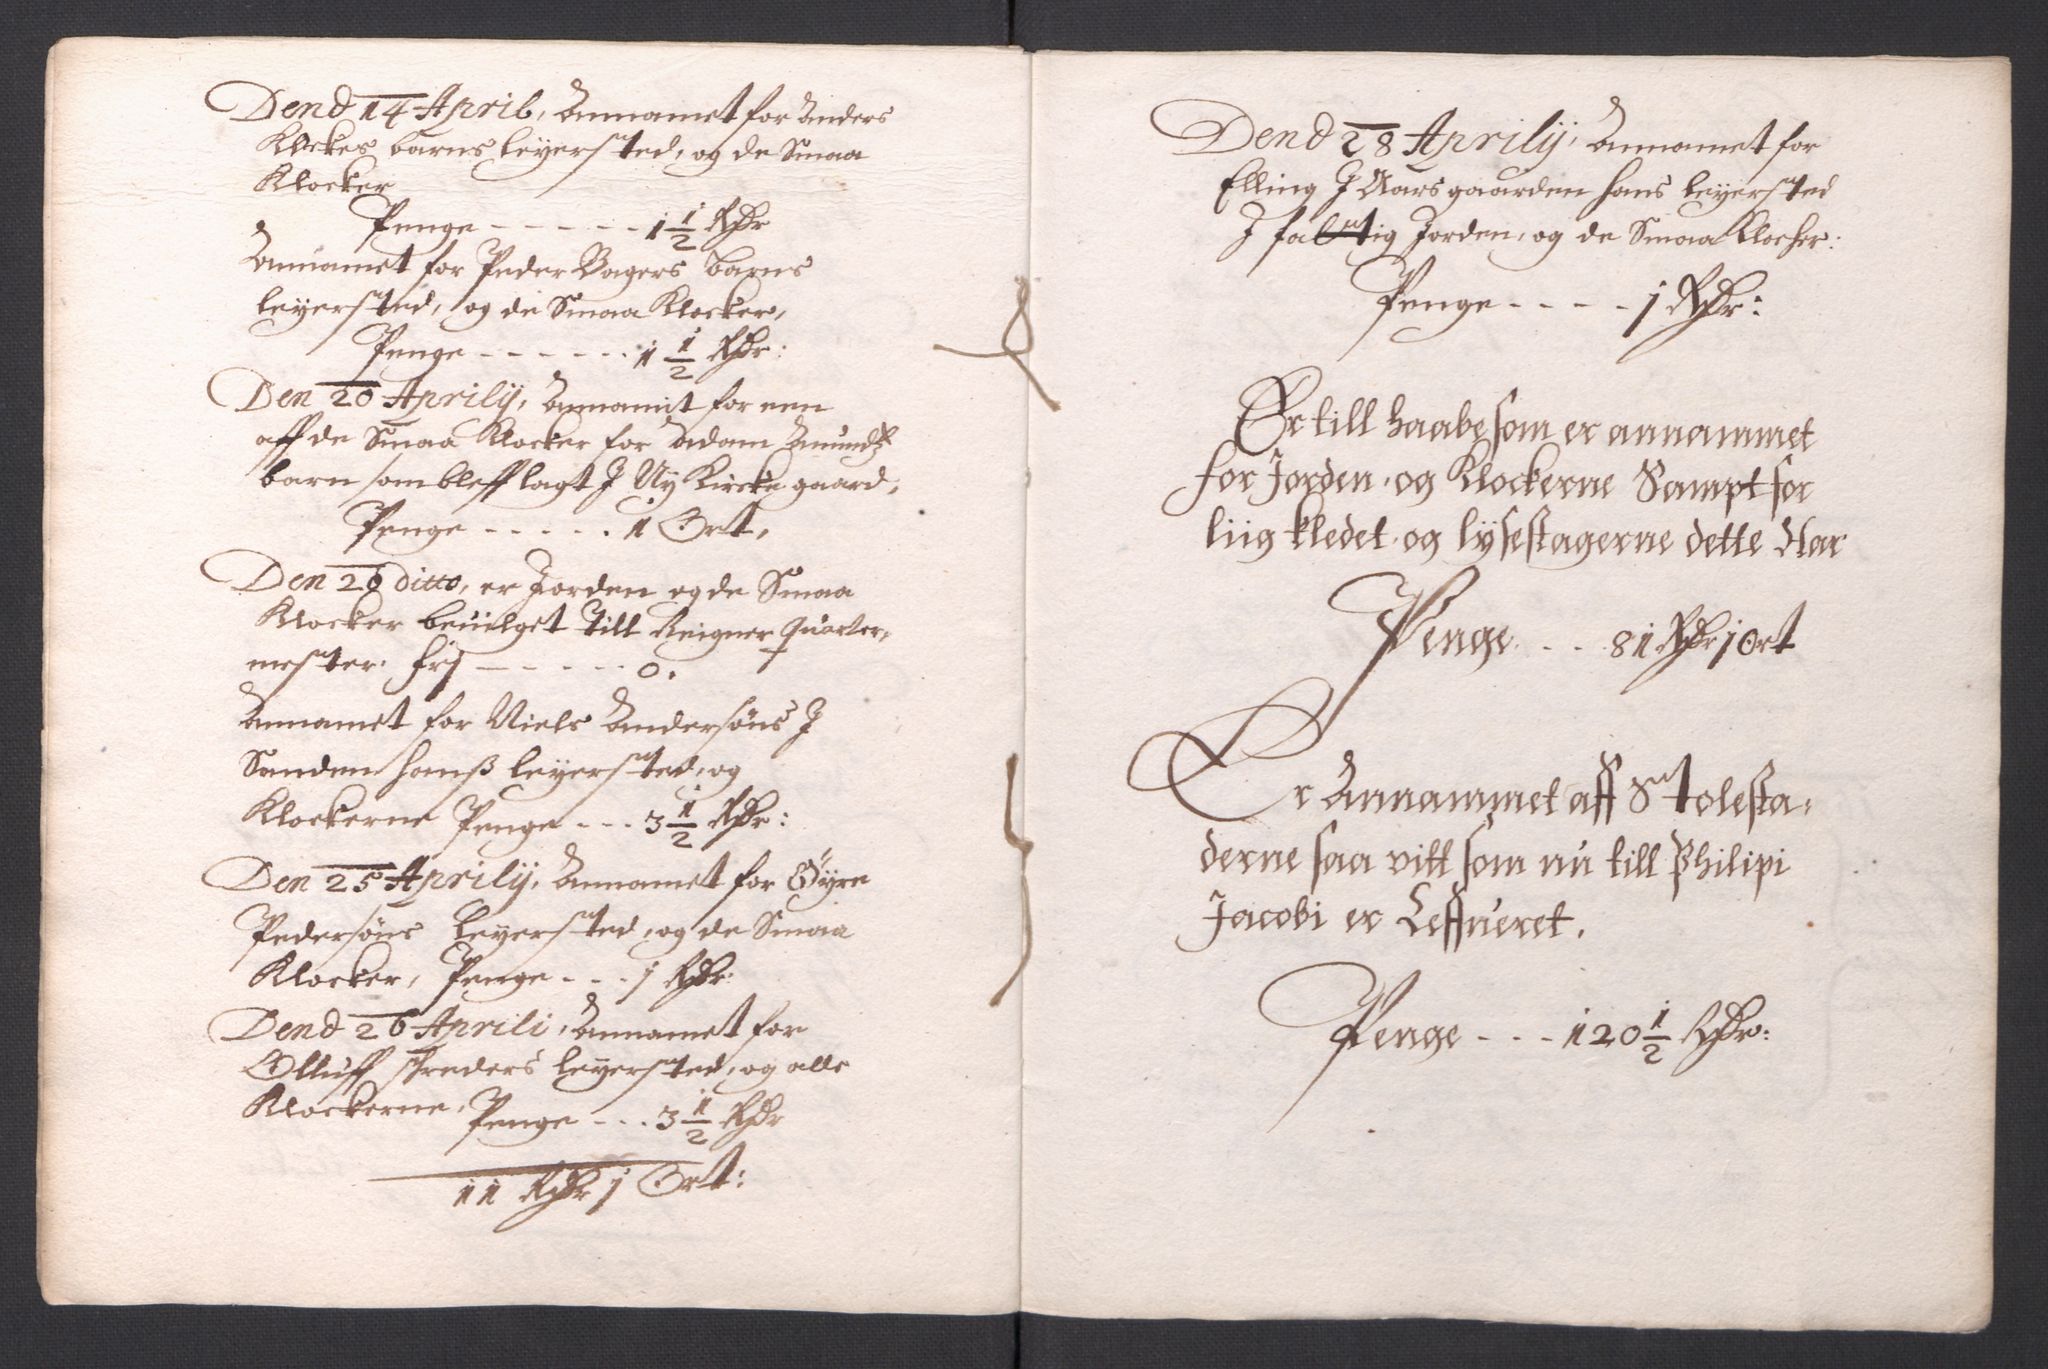 Dend 14 Aprili, Annamet for Anders
Klockes barns leyersted, og de Smaa
Klocker
Penge - - - - - - 1 1/2 Rdr
Annamet for Peder Bagers barns
leyersted, og de Smaa Klocker,
Penge - - - - - - 1 1/2 Rdr:
Den 20 Aprilij, Annamit for een
aff de Smaa Klocker for Adam Amundß
barn som bleff lagt J Ny Kircke gaard,
Penge - - - - - 1 Ort,
Den ditto, er Jorden og de Smaa
Klocker beuilget Till Reigner Quarter,
mester. frj - - - - - 0.
Annamet for Niels Andersöns J
Sanden hanß leyersted, og
Klockerne Penge - - - 3 1/2 Rdr:
Den 25 Aprilij, Annamet for
Pedersöns leyersted, og de Smaa
Klocker, Penge - - - j Rdr:
Dend 26 Aprili, Annamet for
Olluff skreders leyersted, og alle
Klockerne, Penge - - - 3 1/2 Rdr
11 Rdr j Ort:
Dend 28 Aprilij, Annamet for
Elling J Aarsgaarden hans leyersted
J Jorden, og de Smaa Klocker:
Penge - - - - j Rdr:
Er till haabe som er annammet
for Jorden, og Klockerne Sampt for
liig kledet, og lysestagerne dette Aar
Penge - - - 81 Rdr j Ort
Er Annammet aff Stolesta,
derne saa vitt som nu till Philipi
Jacobi er Leffueret.
Penge - - - 120 1/2 Rdr: